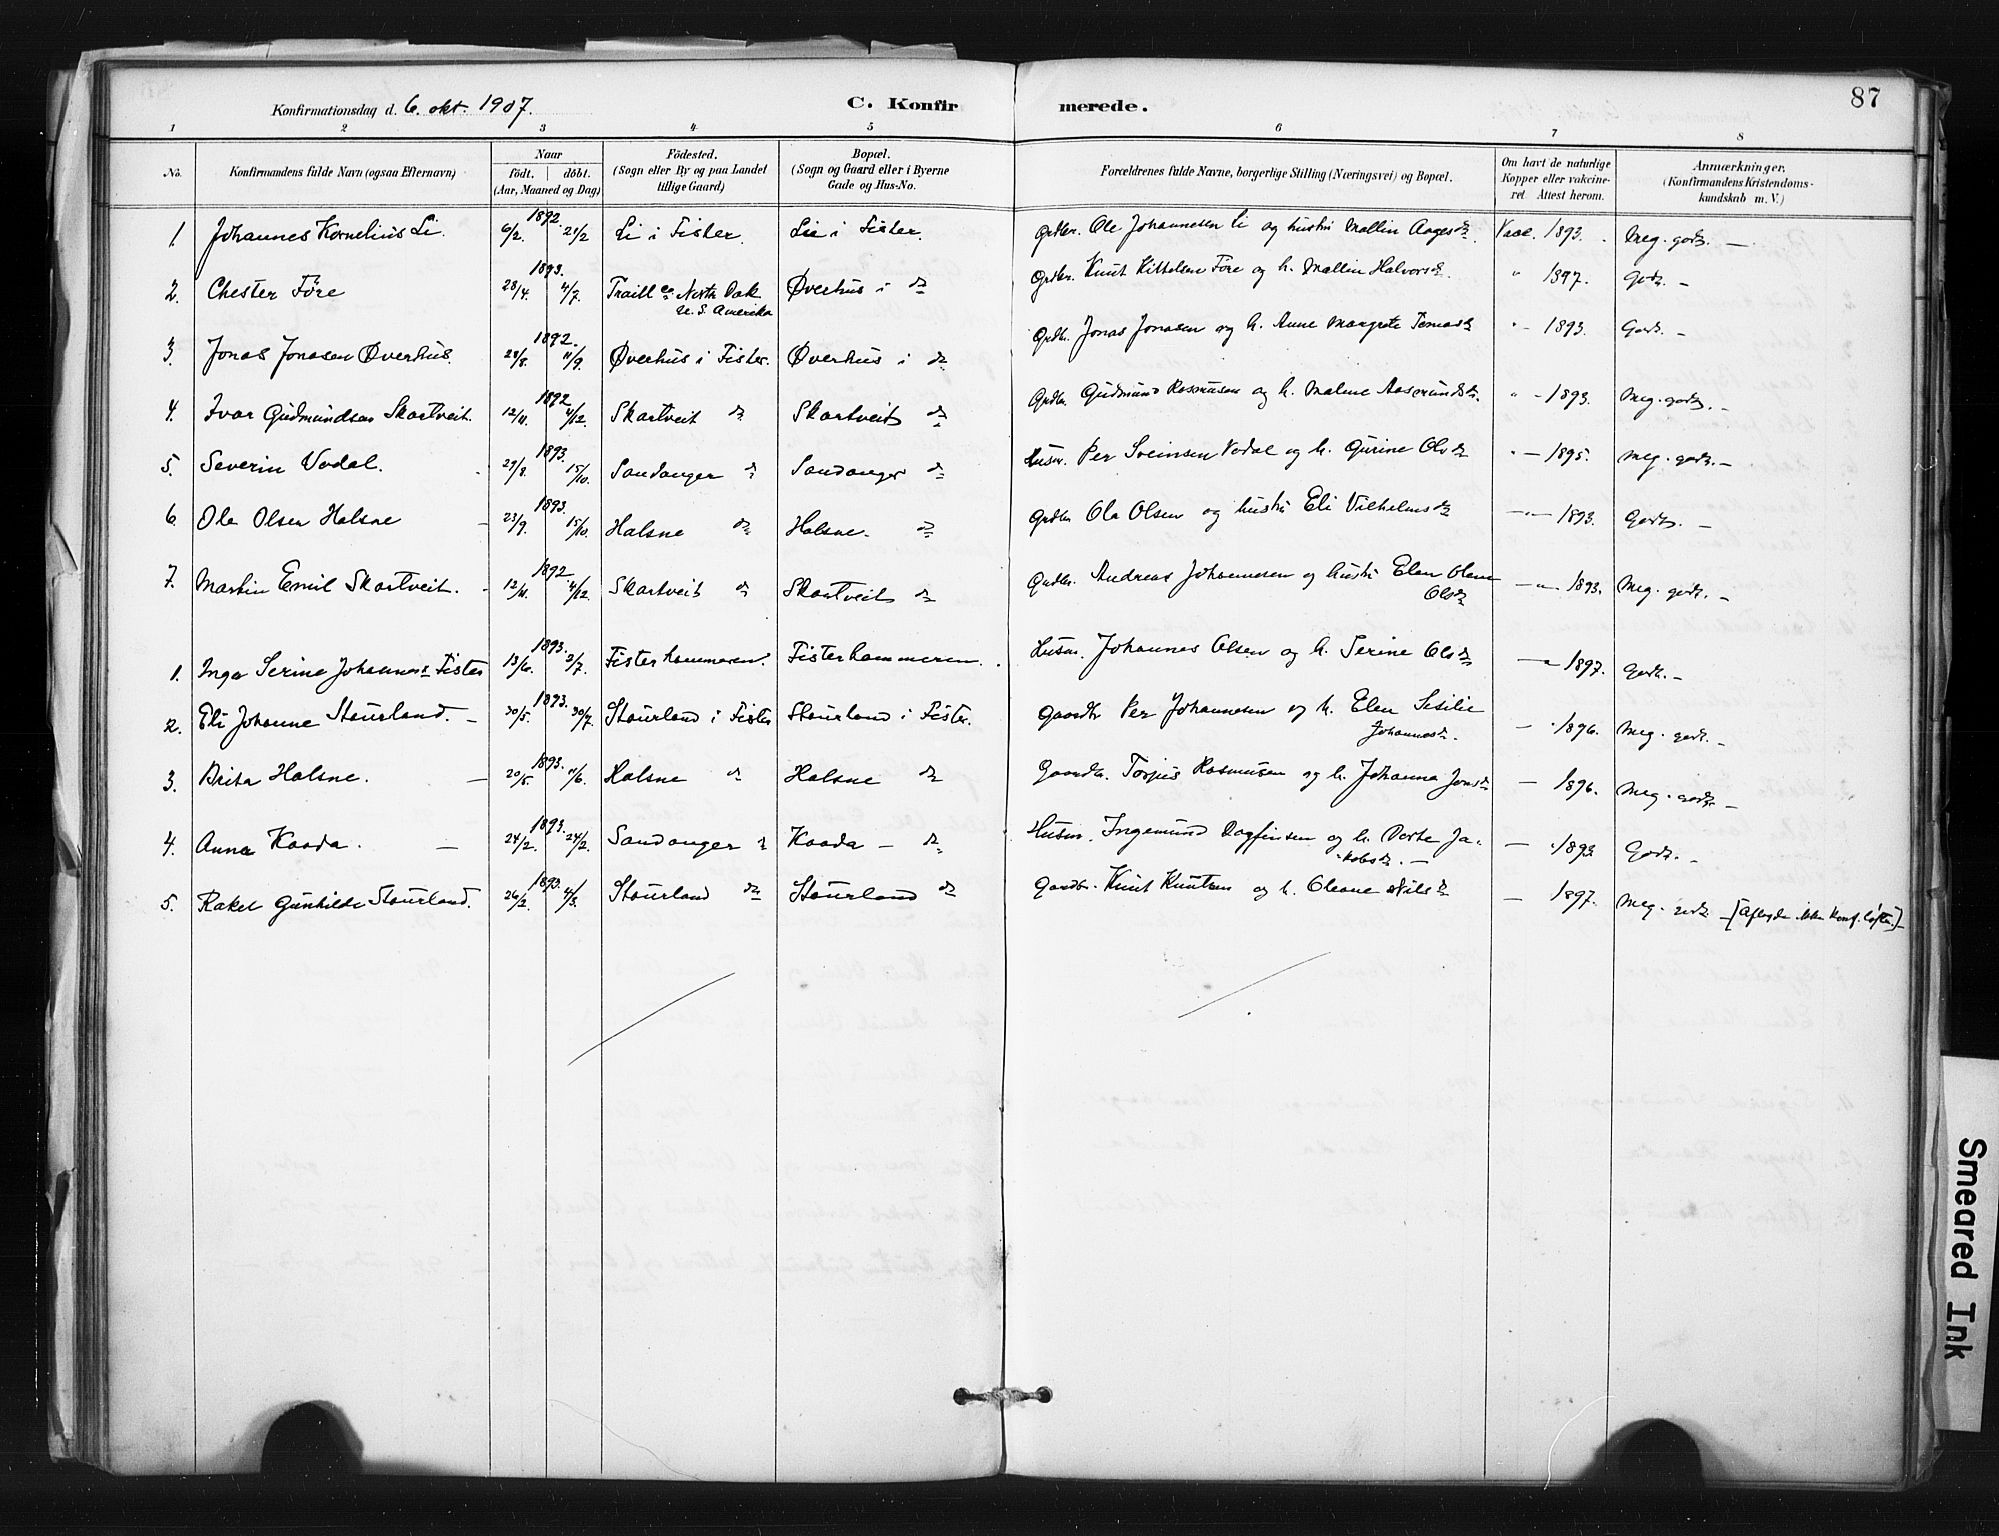 87
Konfirmationsdag d. 6. okt. 1907.
C. Konfirmerede.
1 2 3 4 5 6 7 8
No. Konfirmandens fulde Navn (ogsaa Efternavn) Naar født. døbt. (Aar, Maaned og Dag) Fødested. (Sogn eller By og paa Landet tillige Gaard) Bopæl. (Sogn og Gaard eller i Byerne Gade og Hus-No. Forældrenes fulde Navne, borgerlige Stilling (Næringsvei) og Bopæl. Om havt de naturlige Kopper eller vakcineret Attest herom. Anmærkninger. (Konfirmandens Kristendomskundskab m. V.)
1. Johannes Kornelius Li. 1892. 6/2. 21/2 Li i Fister. Lie i Fister. Grdbr. Ole Johannesen Li og hustru Mallin Aagesdr. Vacc. 1893. Meg. godt. —
2. Chester Före 1893. 28/4. 4/7. Traill co North Dak. U. S. Amerika Øverhus i do Grdbr. Knut Kittelsen Före og h. Mallin Halvorsdr. " 1897. Godt. —
3. Jonas Jonasen Øverhus. 1892. 28/8. 11/9. Øverhus i Fister. Øverhus i do Grdbr. Jonas Jonasen og h. Anne Margrete Tomasdr " - 1893. Godt. —
4. Ivar Gudmundsen Skartveit. 1892 12/11. 4/12. Skartveit do Skartveit do Grdbr. Gudmund Rasmusen og h. Malene Aasmundsdr. " - 1893. Meg. godt. —
5. Severin Vodal. 1893. 29/8. 15/10. Sandanger do Sandanger do Husm. Per Sveinsen Vodal og h. Gurine Olsdr " — 1895. Meg. godt. —
6. Ole Olsen Halsne 1893. 23/9. 15/10. Halsne do Halsne. do Grdbr Ole Olsen og hustru Eli Vilhelmsdr —"— 1893. Godt. —
7. Martin Emil Skartveit. 1892. 12/11. 4/12. Skartveit do Skartveit do Grdbr. Andreas Johannesen og hustru Elen Olene Olsdr —"— 1893. Meg. godt. —
1. Inga Serine Johannesdr Fister 1893. 13/6. 2/7. Fisterhammeren. Fisterhammeren. Husm. Johannes Olsen og h. Serine Olsdr —" 1897. Godt. —
2. Eli Johanne Stourland. — 1893. 30/5. 30/7. Stourland i Fister Stourland i Fister. Gaardbr Per Johannesen og h. Elen Sesilie Johannesdr. — " 1896. Meg. godt. —
3. Brita Halsne. — 1893. 20/5. 11/6. Halsne do Halsne do Gaardbr. Torjus Rasmusen og h. Johanna Jonsdr — 1896. Meg. godt. —
4. Anna Kaada. — 1893. 24/2. 24/2. Sandanger do Kaada — do Husm. Ingemund Dagfinsen og h. Berte Jakobsdr. — — " 1893 Godt. —
5. Rakel Gunhilde Stourland. 1893. 26/2. 4/3. Stourland do Stourland do Gaardbr. Knut Knutsen og h. Oleane Nilsdr — 1897. Meg. godt — [Aflagde ikke Konf. løfte.] —
Smeared Ink